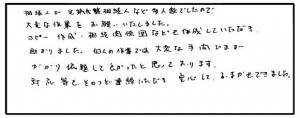 相続人が兄弟代襲相続人など多人数でしたので
大変な作業をお願いいたしました。
コピー作成・相続関係図なども作成していただき
助かりました。個人の作業では大変な手間ひまが
かかり依頼して良かったと思っております。
対応等もそのつど連絡いただき安心して、おまかせできました。